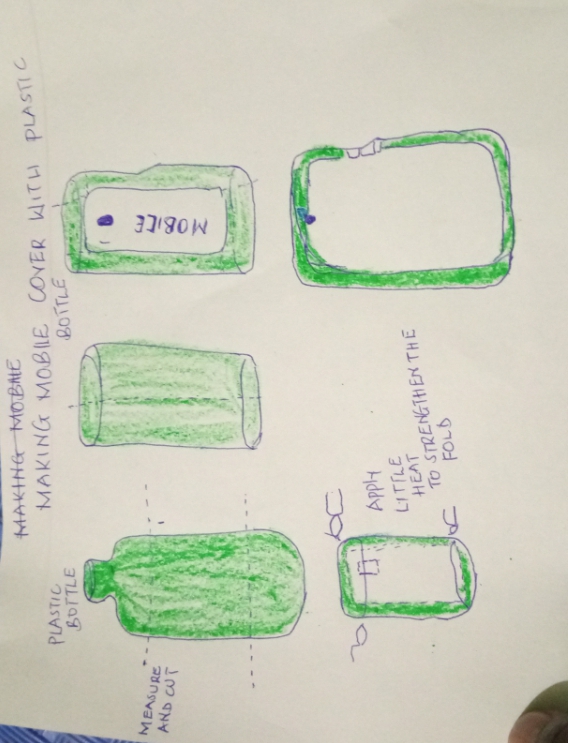 MAKING MOBILE
MAKING MOBILE COVER WITH PLASTIC
BOTTLE
PLASTIC
BOTTLE
MEASURE
AND CUT
MOBILE
APPLY
LITTLE
HEAT
TO STRENGTHEN THE
FOLD